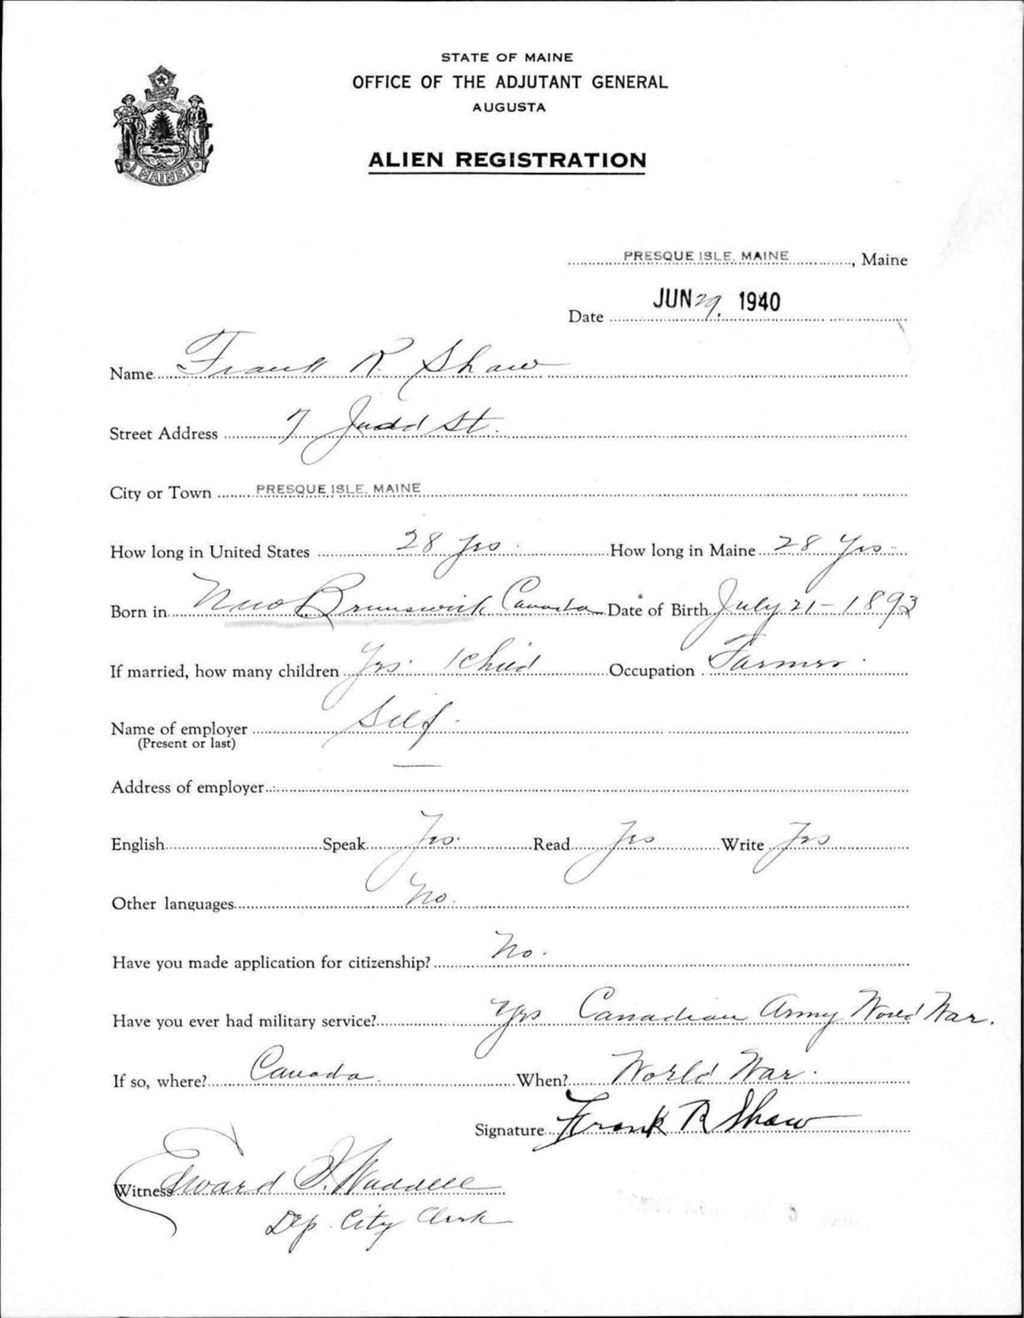 STATE OF MAINE
OFFICE OF THE ADJUTANT GENERAL
AUGUSTA
ALIEN REGISTRATION
MAINE
PRESQUE ISLE, MAINE, Maine
Date JUN 29, 1940
Name Frank R. Shaw
Street Address 7 Judd St.
City or Town PRESQUE ISLE, MAINE
How long in United States 28 yrs. How long in Maine 28 Yrs.
Born in New Brunswick Canada Date of Birth July 21 - 1893
If married, how many children Yes. 1 Child Occupation Farmer.
Name of employer Self.
(Present or last)
Address of employer —
English Speak Yes. Read Yes Write Yes
Other languages No.
Have you made application for citizenship? No.
Have you ever had military service? Yes Canadian Army World War.
If so, where? Canada When? World War.
Signature Frank R Shaw
Witness Edward I. Waddell
Dep. City Clerk